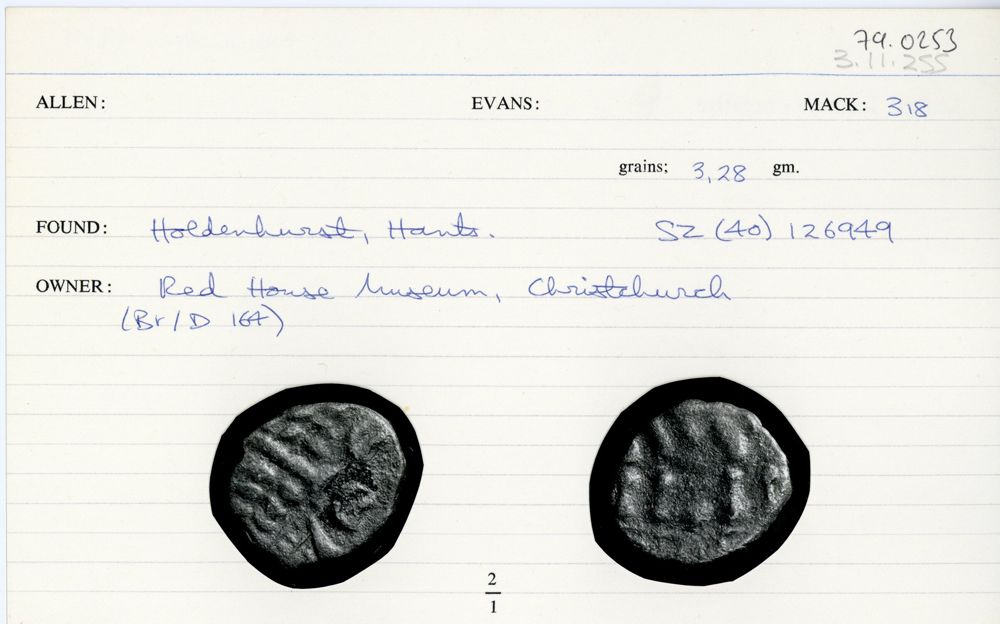 79.0253
3.11.255
ALLEN: EVANS: MACK: 318
grains; 3,28 gm.
FOUND: Holdenhurst, Hants. SZ (40) 126949
OWNER: Red House Museum, Christchurch
(Br/D 164)
2
1